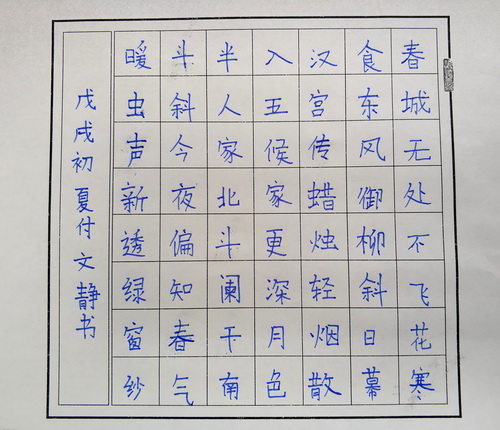 春城无处不飞花寒
食东风御柳斜日幕
汉宫传蜡烛轻烟散
入五候家更深月色
半人家北斗阑干南
斗斜今夜偏知春气
暖虫声新透绿窗纱
戊戌初夏付文静书